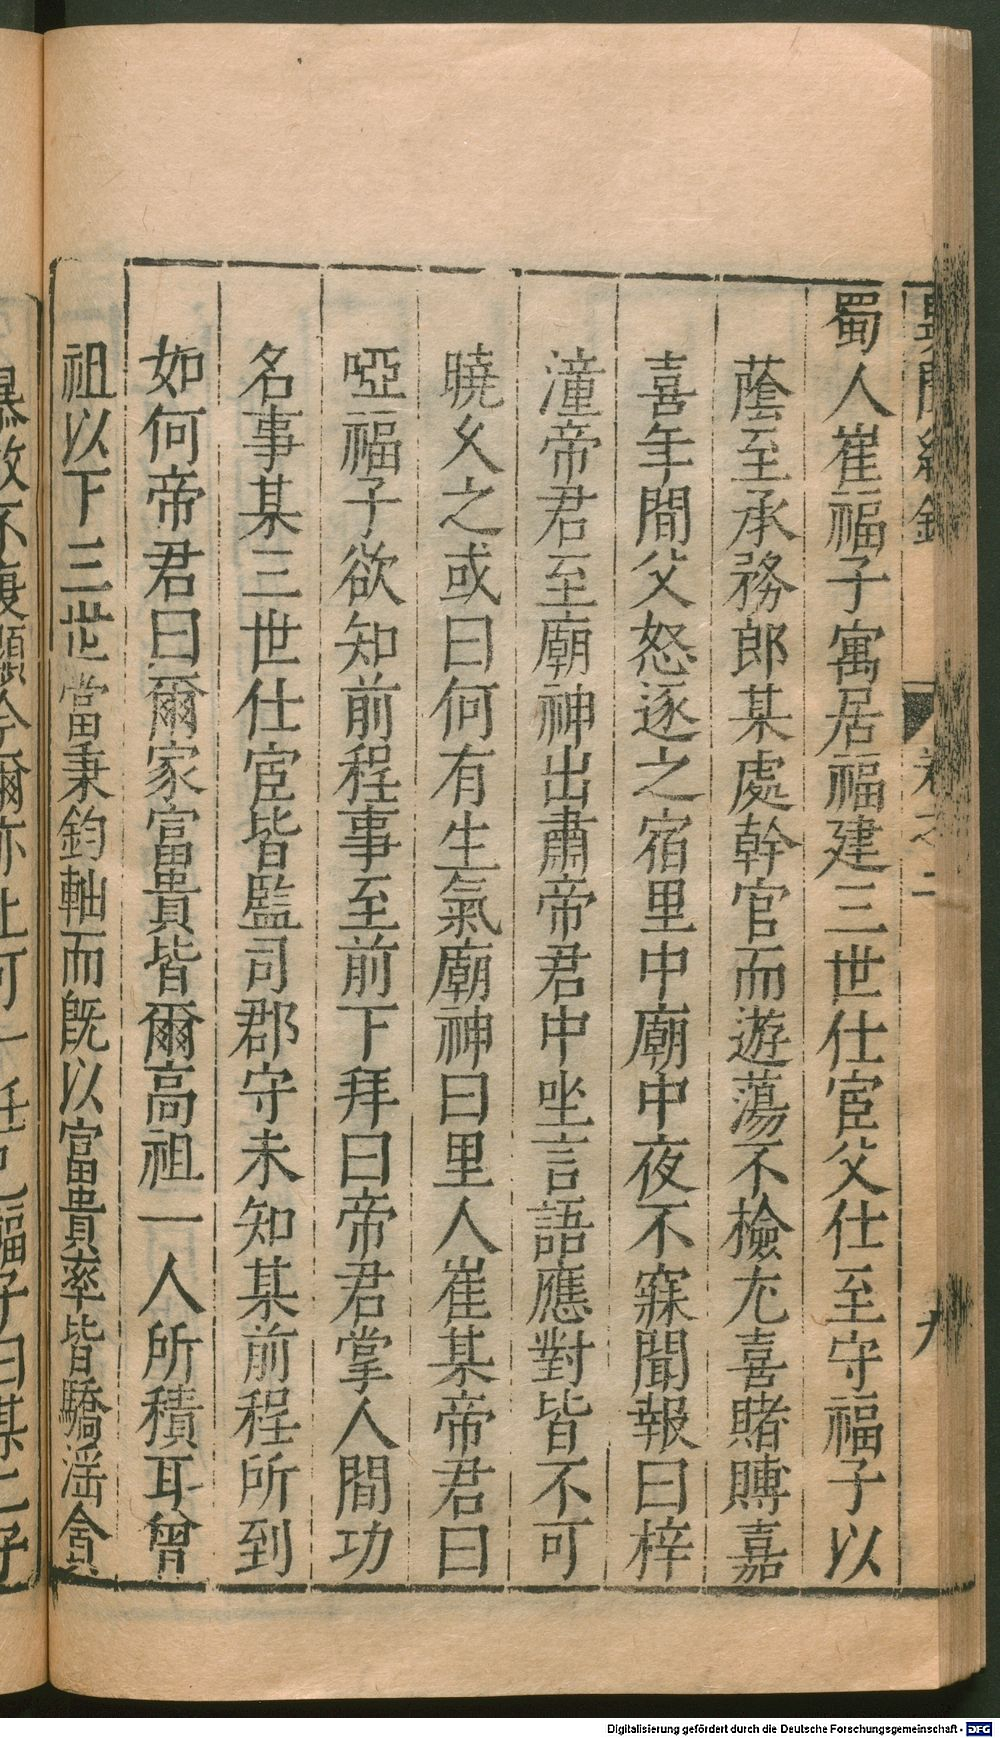 蜀人崔福子寓居福建三世仕宦父仕至守福子以
蔭至承務郎某處幹官而遊蕩不檢尤喜賭賻嘉
喜年間父怒逐之宿里中廟中夜不寐聞報曰梓
潼帝君至廟神出肅帝君中坐言語應對皆不可
曉久之或曰何有生氣廟神曰里人崔某帝君曰
啞福子欲知前程事至前下拜曰帝君掌人間功
名事某三世仕宦皆監司郡守未知某前程所到
如何帝君曰爾家富貴皆爾高祖一人所積耳曾
祖以下三世當秉鈞軸而旣以富貴率皆驕淫貪
卷之二
九
Digitalisierung gefördert durch die Deutsche Forschungsgemeinschaft - DFG